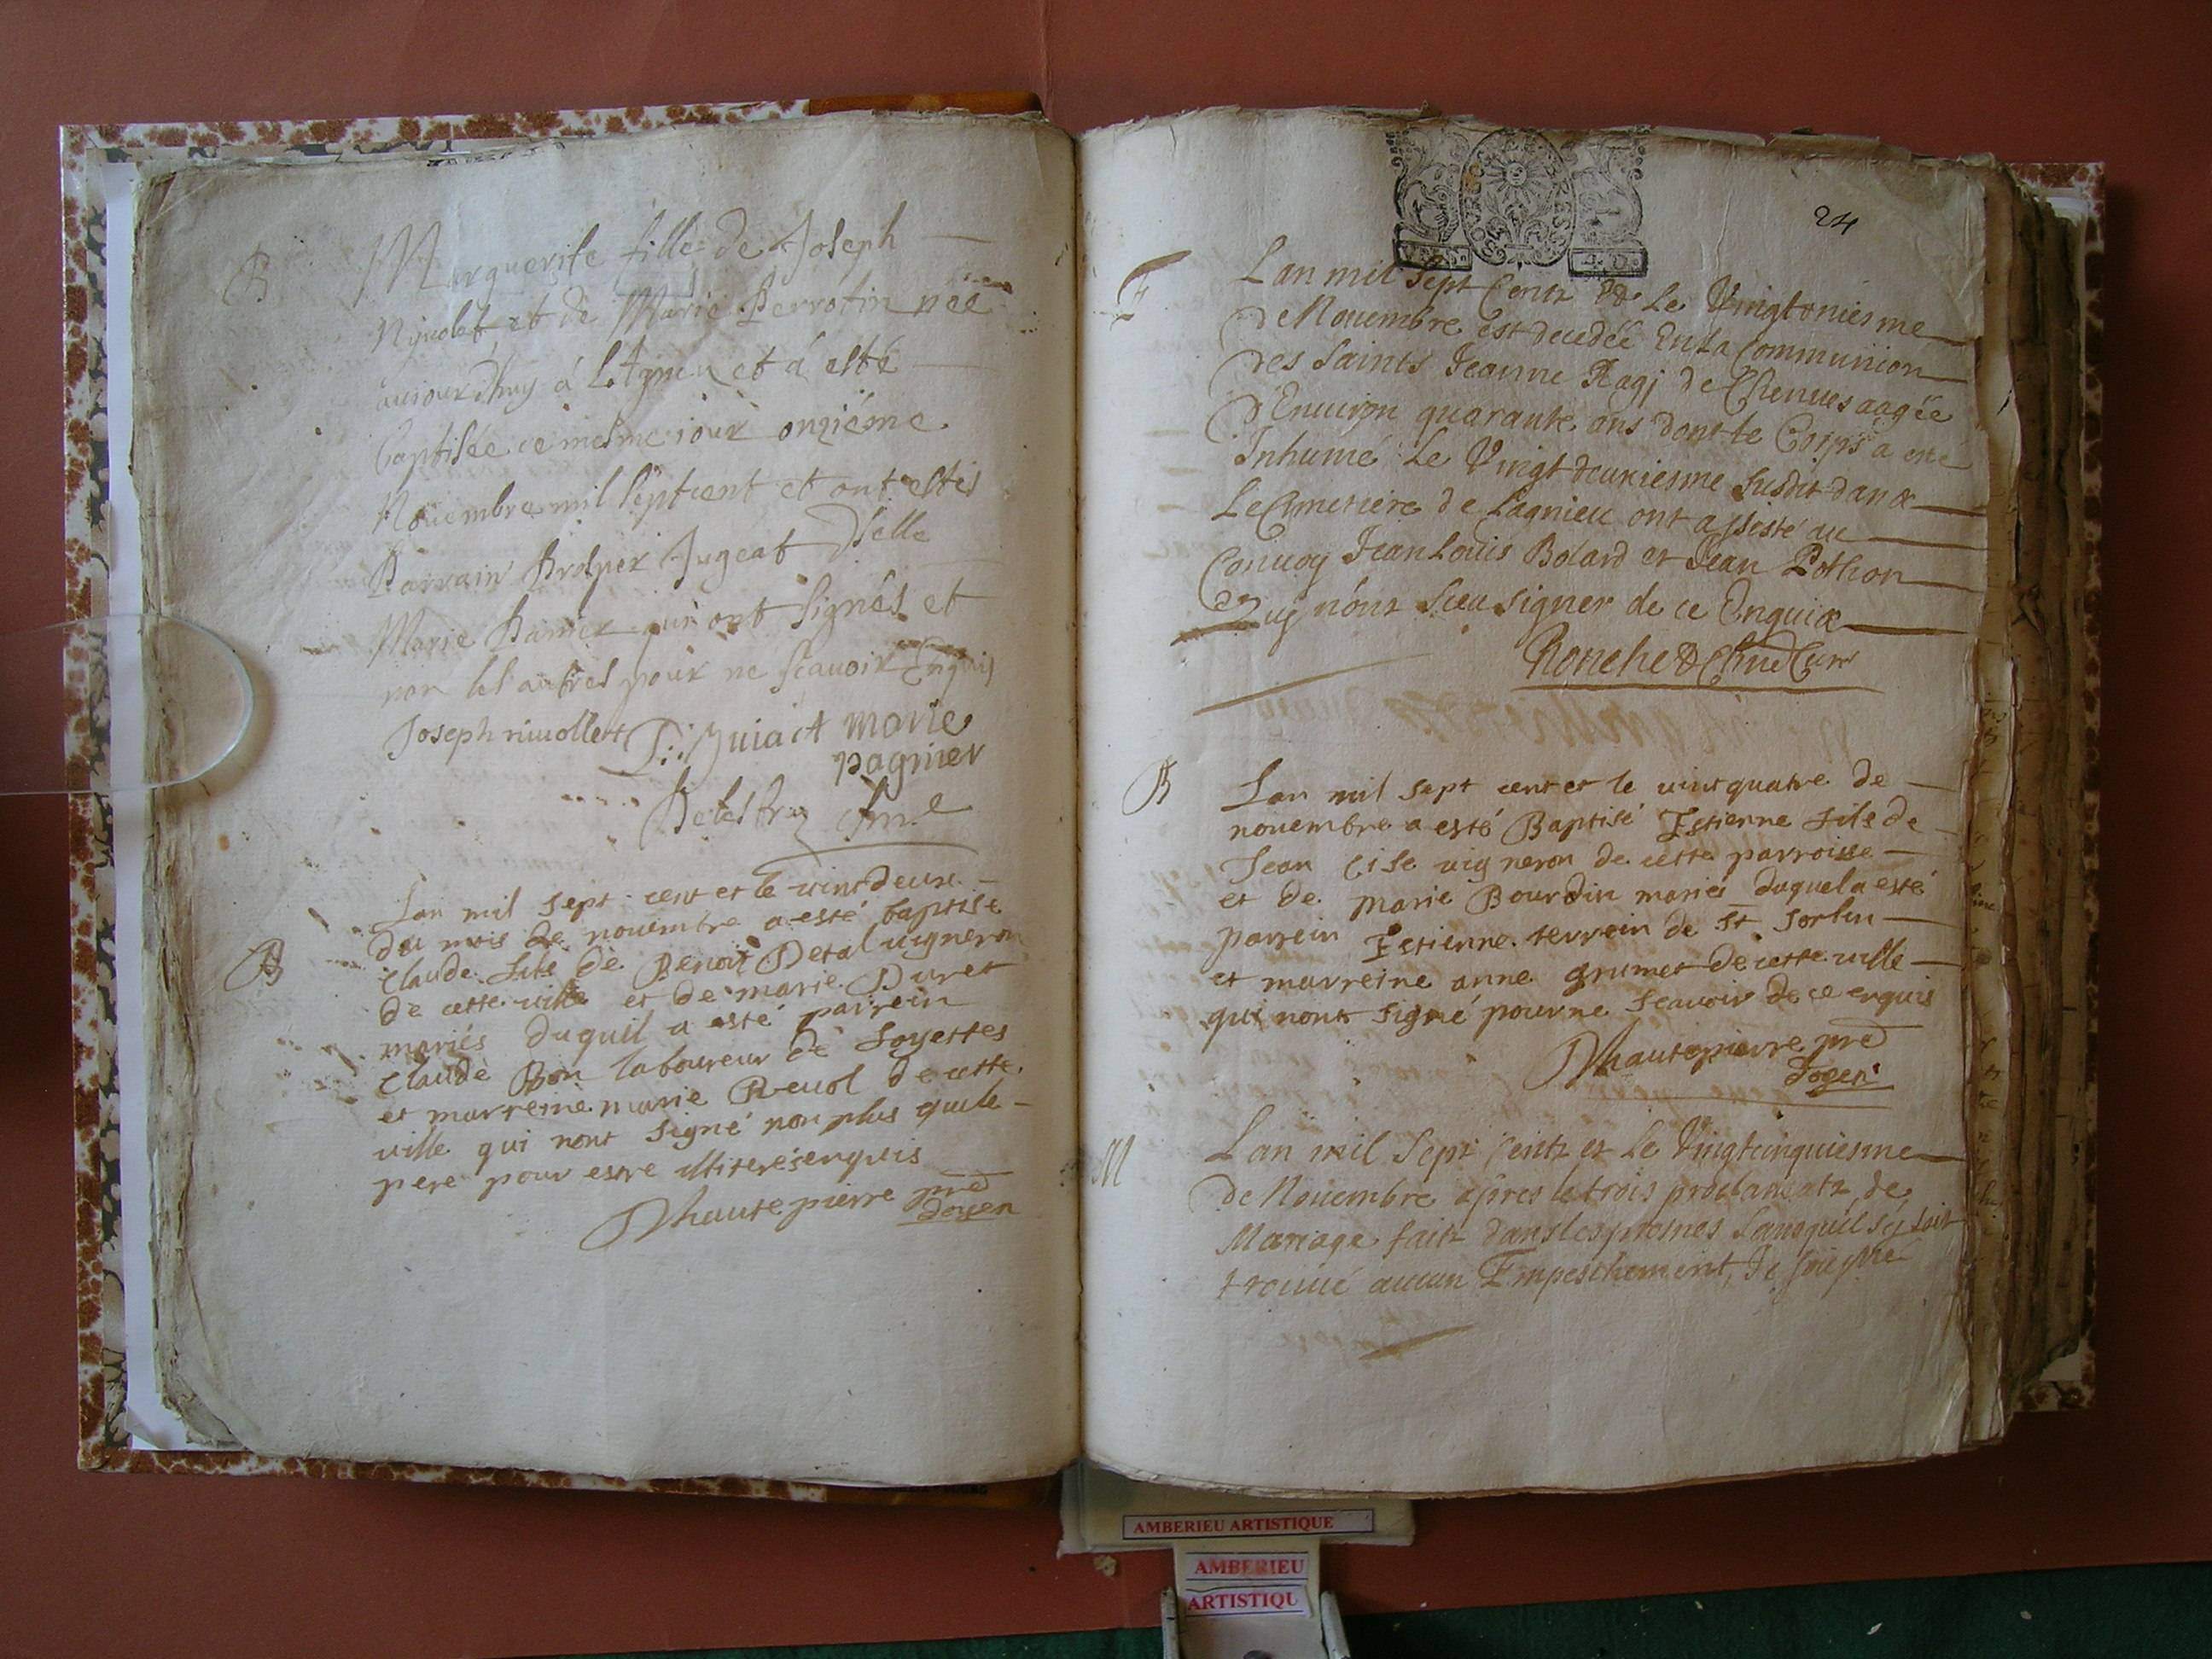 B
Marguerite fille de Joseph
et de Marie Perrotin née
aujourdhuy á LAgnieu et á esté
baptisée ce mesme jour onziéme
Novembre mil septcent et ont estés
Parrain Prosper Jugeat d'elle
Marie qui ont signés et
non les autres pour ne scavoir Enquis
Joseph marie
pagnier
B
Lan mil sept cent et le vint deux
du mois de novembre a esté baptisé
claude fils de Benoit Detal vigneron
de cette ville et de marie Duret
mariés duquil a esté parrein
claude Bon laboureur de Soyettes
et marreine marie Revol de cette
ville qui nont signé non plus que le
pere pour estre illiterés enquis
Dhautepierre pre
doyen
24
F
Lan mil Sept Centz Le
de Novembre est decedée En La Communion
des Saints Jeanne de Chenves aagée
d'Environ quarante ans dont le Corps a ete
Inhumé Le Vingt deuxiesme susdit dans
Le Cimetiere de Lagnieu ont assisté au
Convoy Jean Louis Bolard et Jean Pothon
quj n'ont sceu signer de ce Enquis
B
Lan mil sept cent et le vint quatre de
novembre a esté Baptisé Estienne fils de
Jean Cise vigneron de cette parroisse
et de marie Bourdin mariés duquel a esté
parrein Estienne terrein de St Sorlin
et marreine anne grumet de cette ville
qui nont signé pour ne scavoir de ce enquis
Dhautepierre pre
doyen
M
Lan mil Sept Centz et Le Vingtcinquiesme
de Novembre apres le trois proclamatz de
Mariage faitz dans les prosnes sans quil sy soit
trouvé aucun Empeschement, Je
AMBERIEU ARTISTIQUE
AMBERIEU
ARTISTIQU